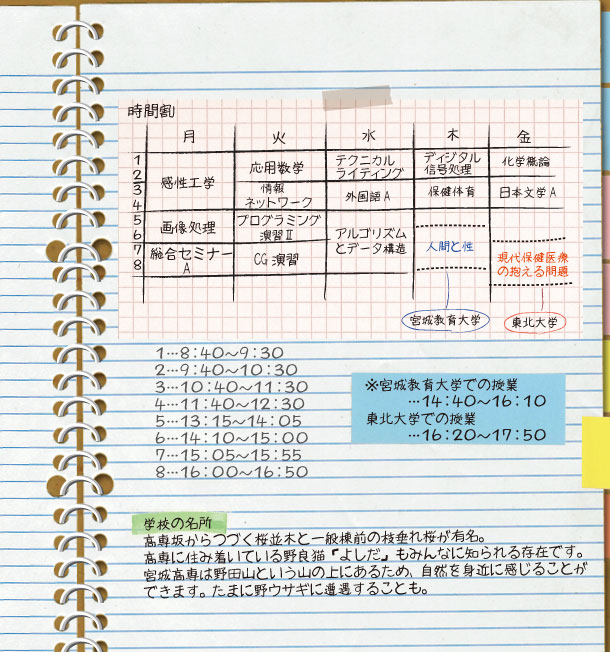 時間割
月 火 水 木 金
1
2
3
4
5
6
7
8
感性工学
画像処理
総合セミナー
A
応用数学
情報
ネットワーク
プログラミング
演習Ⅱ
CG演習
テクニカル
ライティング
外国語A
アルゴリズム
とデータ構造
ディジタル
信号処理
保健体育
人間と性
宮城教育大学
化学概論
日本文学A
現代保健医療
の抱える問題
東北大学
1…8:40〜9:30
2…9:40〜10:30
3…10:40〜11:30
4…11:40〜12:30
5…13:15〜14:05
6…14:10〜15:00
7…15:05〜15:55
8…16:00〜16:50
※宮城教育大学での授業
…14:40〜16:10
東北大学での授業
…16:20〜17:50
学校の名所
高専坂からつづく桜並木と一般棟前の枝垂れ桜が有名。
高専に住み着いている野良猫『よしだ』もみんなに知られる存在です。
宮城高専は野田山という山の上にあるため、自然を身近に感じることが
できます。たまに野ウサギに遭遇することも。